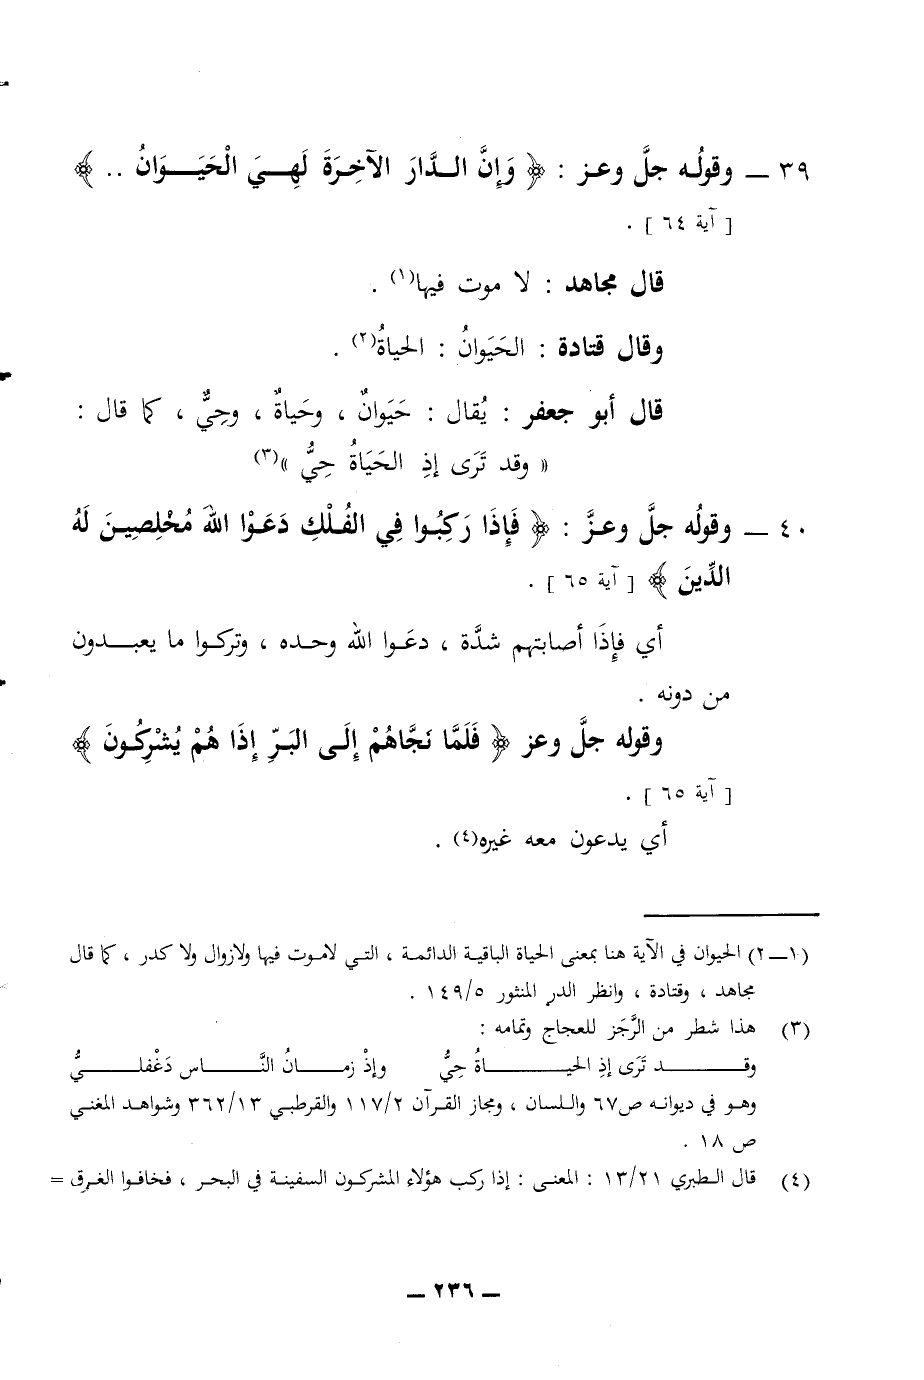 ٣٩ ــ وقولُه جلَّ وعز : ﴿ وَإِنَّ الدَّارَ الآخِرَةَ لَهِيَ الْحَيَوَانُ .. ﴾
[ آية ٦٤ ] .
قال مجاهد : لا موت فيها(١) .
وقال قتادة : الحَيَوانُ : الحياةُ(٢) .
قال أبو جعفر : يُقال : حَيَوانٌ ، وحَياةٌ ، وحِيٌّ ، كما قال :
« وقد تَرَى إذِ الحَيَاةُ حِيُّ »(٣)
٤٠ ــ وقولُه جلَّ وعزَّ : ﴿ فَإِذَا رَكِبُوا فِي الفُلْكِ دَعَوْا اللهَ مُخْلِصِينَ لَهُ
الدِّينَ ﴾ [ آية ٦٥ ] .
أي فإِذَا أصابتهم شدَّة ، دعَوا الله وحده ، وتركوا ما يعبدون
من دونه .
وقوله جلَّ وعز ﴿ فَلَمَّا نَجَّاهُمْ إِلَى البَرِّ إِذَا هُمْ يُشْرِكُونَ ﴾
[ آية ٦٥ ] .
أي يدعون معه غيره(٤) .
(١ــ٢) الحيوان في الآية هنا بمعنى الحياة الباقية الدائمة ، التي لاموت فيها ولازوال ولا كدر ، كما قال
مجاهد ، وقتادة ، وانظر الدر المنثور ١٤٩/٥ .
(٣) هذا شطر من الرَّجَز للعجاج وتمامه :
وقد تَرَى إذِ الحياةُ حِيُّ وإذْ زمانُ النَّاس دَغْفليُّ
وهو في ديوانه ص٦٧ واللسان ، ومجاز القرآن ١١٧/٢ والقرطبي ٣٦٢/١٣ وشواهد المغني
ص ١٨ .
(٤) قال الطبري ١٣/٢١ : المعنى : إذا ركب هؤلاء المشركون السفينة في البحر ، فخافوا الغرق =
ــ ٢٣٦ ــ